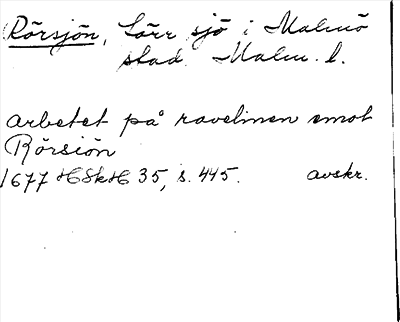 Rörsjön, torr sjö i Malmö
stad. Malm. l.
arbetet på ravelinen emot
Rörsiön
1677 HSkH 35, s. 445. avskr.